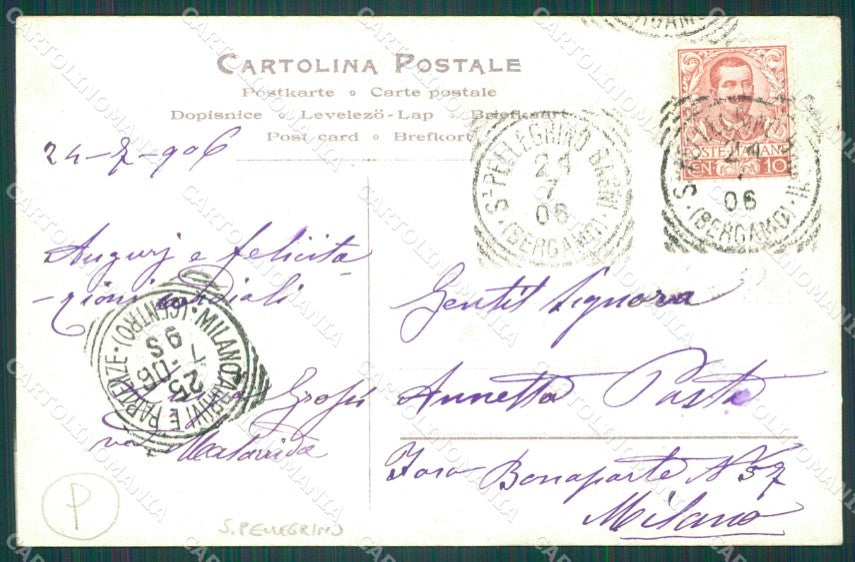 CARTOLINA POSTALE
Postkarte ∘ Carte postale
Dopisnice ∘ Levelezö-Lap ∘ Briefkaart
Post card ∘ Brefkort
24-7-906
Augurj e felicita-
-zioni cordiali
Gentil Signora
Annetta
Foro Bonaparte N 57
Milano
S. PELLEGRINO BAGNI
24
7
06
(BERGAMO)
POSTE ITALIANE
CEN 10
24
06
(BERGAMO)
MILANO
ARRIVI E PARTENZE
(CENTRO)
25
7
06
9S
P
S. PELLEGRINO
CARTOLINOMANIA